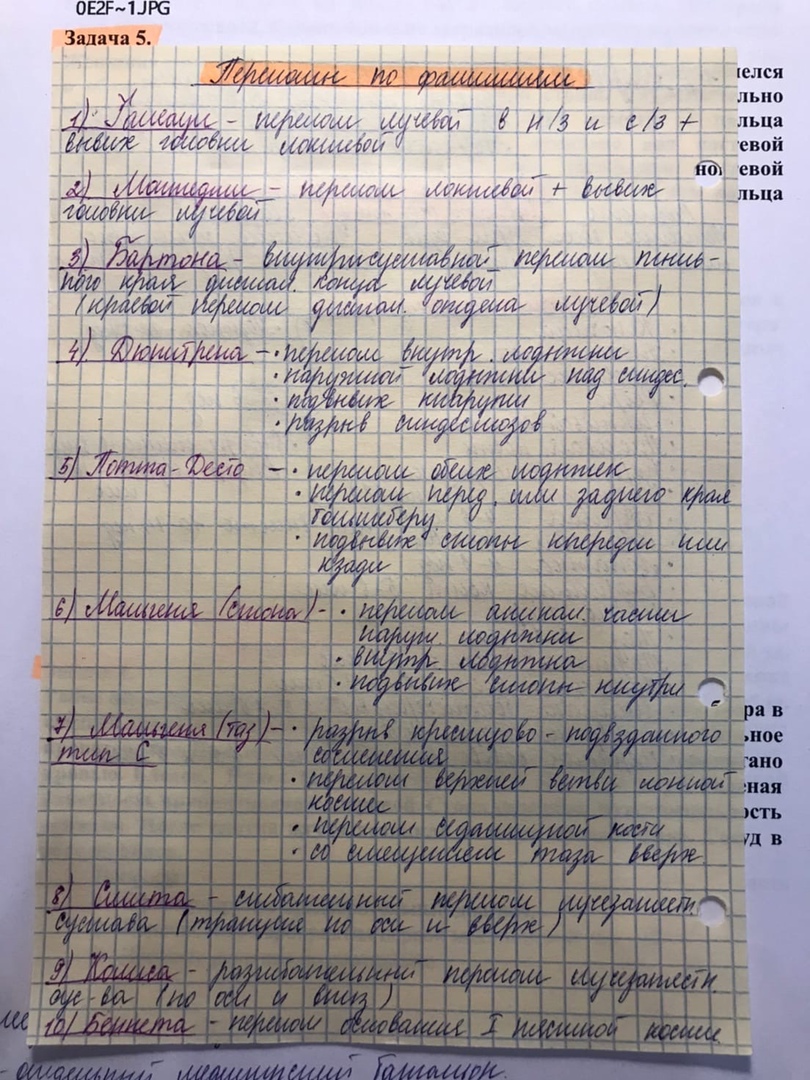 0E2F~1JPG
Задача 5.
Переломы по фамилиям
1) Галеацци - перелом лучевой в н/з и с/з +
вывих головки локтевой
2) Монтеджи - перелом локтевой + вывих
головки лучевой
3) Бартона - внутрисуставной перелом тыльного края дистал. конца лучевой
(краевой перелом дистал. отдела лучевой)
4) Дюпитрена - • перелом внутр. лодыжки
• наружной лодыжки над синдес.
• подвывих кнаружи
• разрыв синдесмозов
5) Потта-Десто - • перелом обеих лодыжек
• перелом перед. или заднего края
большеберц.
• подвывих стопы кпереди или
кзади
6) Мальгеня (стопа) - • перелом апикал. части
наруж. лодыжки
• внутр. лодыжка
• подвывих стопы кнутри
7) Мальгеня (таз) - • разрыв крестцово-подвздошного
тип С сочленения
• перелом верхней ветви лонной
кости
• перелом седалищной кости
• со смещением таза вверх
8) Смита - сгибательный перелом лучезапястн.
сустава (тракция по оси и вверх)
9) Коллеса - разгибательный перелом лучезапястн.
сус-ва (по оси и вниз)
10) Беннета - перелом основания I пястной кости
лся
льно
льца
евой
но евой
льца
ра в
ьное
гано
еная
ость
уд в
медицинский батальон.